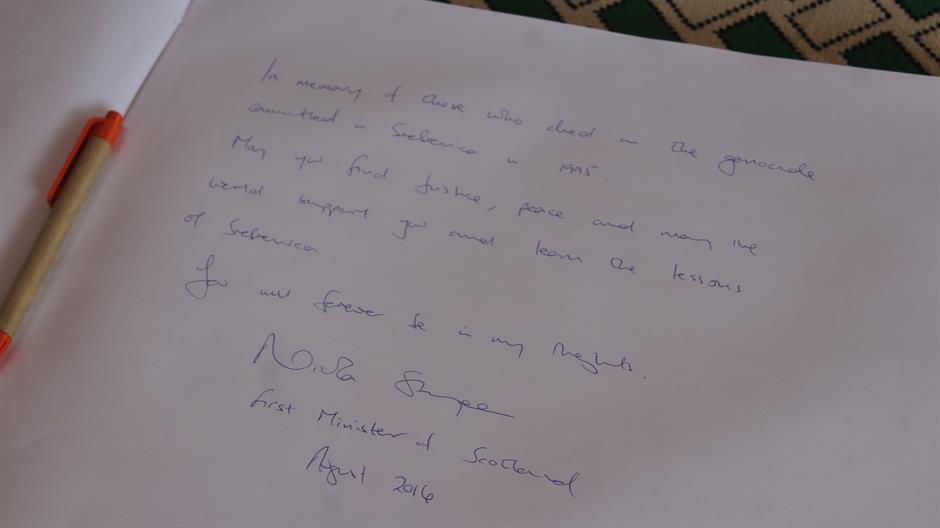 In memory of those who died in the genocide
committed in Srebenica in 1995.
May you find justice, peace and may the
world support you and learn the lessons
of Srebenica.
You will forever be in my thoughts.
Nicola Sturgeon
First Minister of Scotland
August 2016